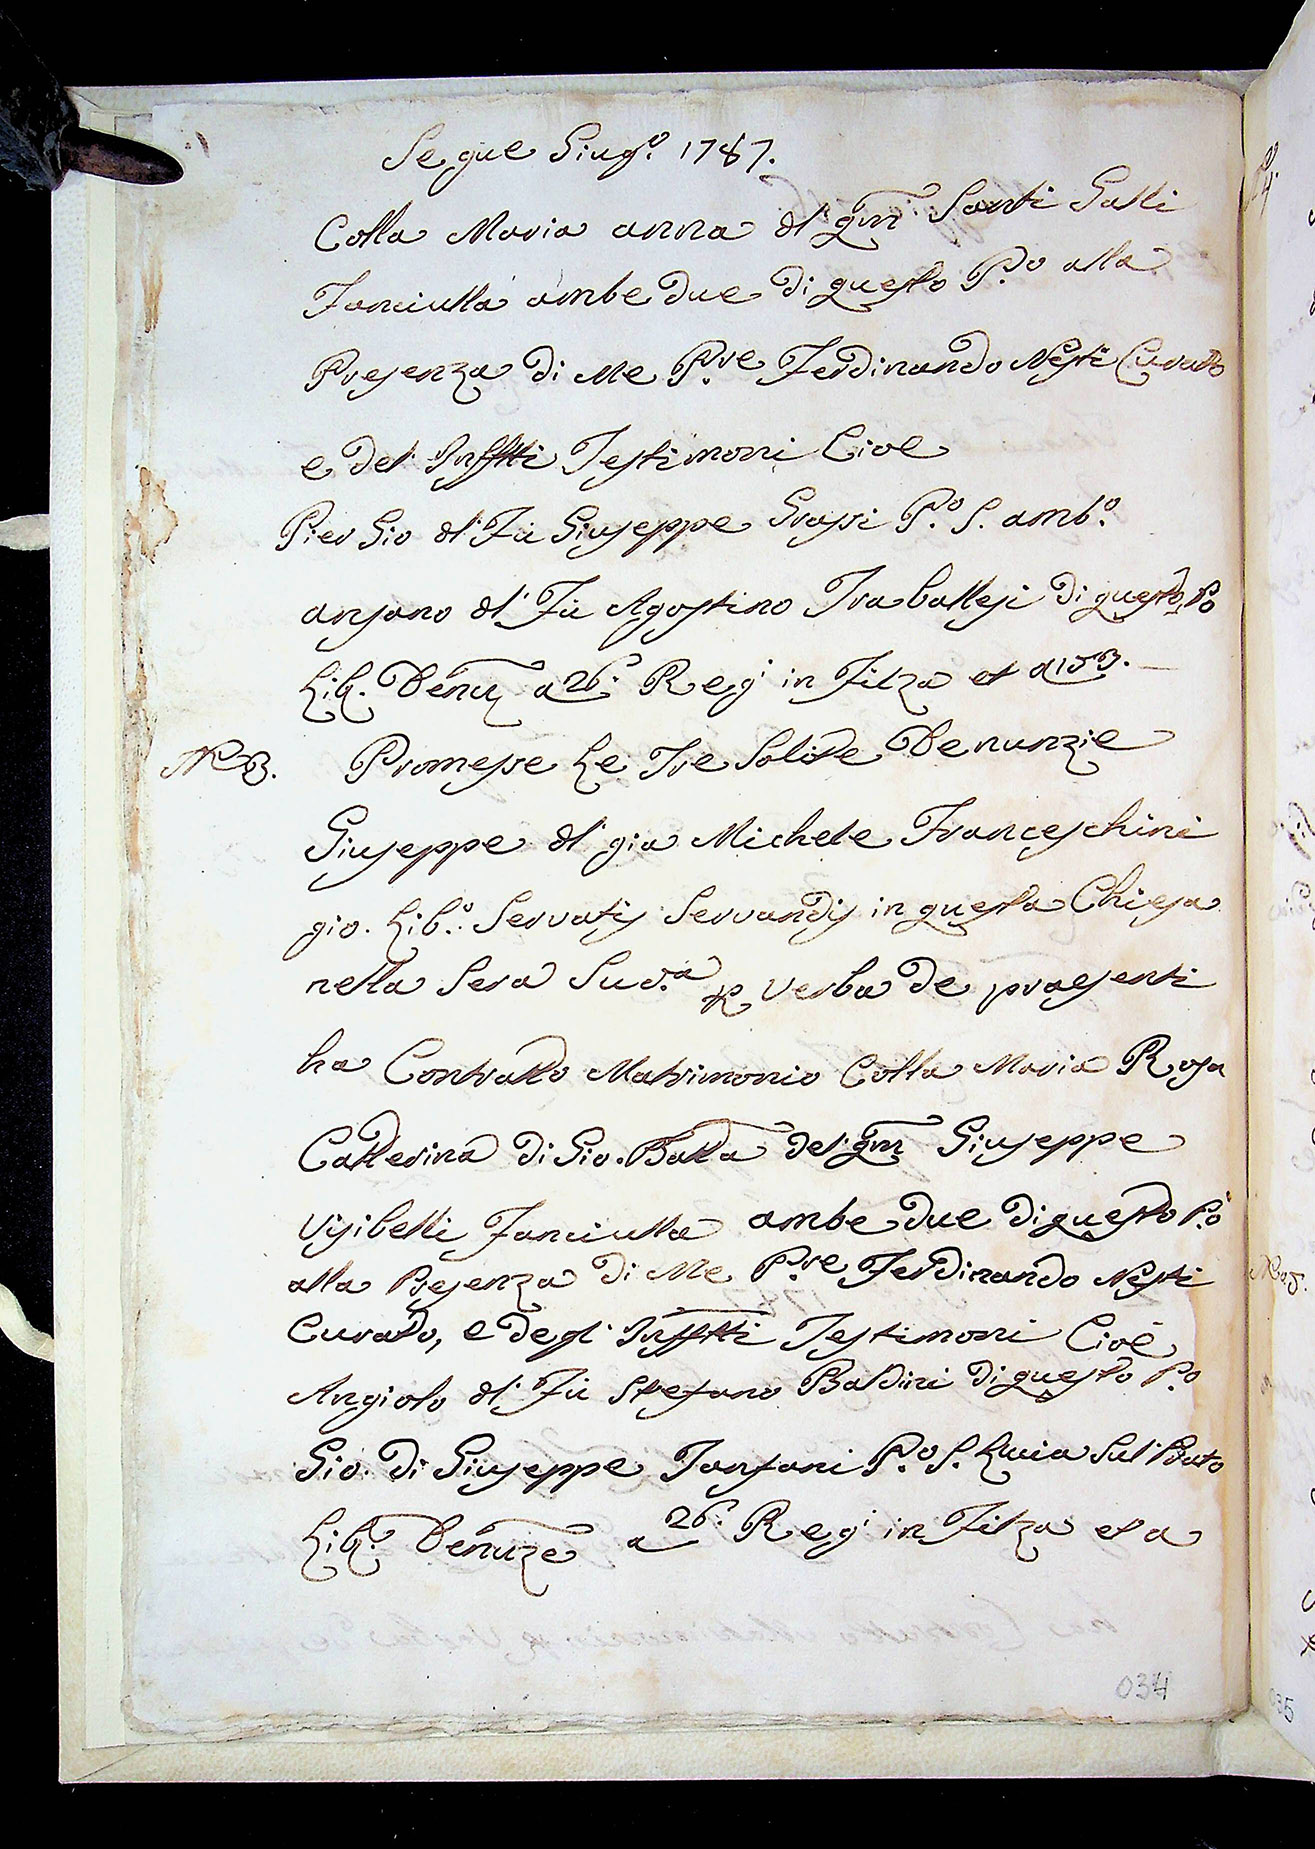 Segue Giug.º 1787.
Colla Maria anna dl' qm Santi Galli
Fanciulla ambe due di questo P.do alla
Presenza di Me P.re Ferdinando Nesti Curatto
e del Inffтti Testimoni Cioe
Pier Gio dl' Fù Giuseppe Grassi P.º S. amb.º
ansano dl' Fù Agostino Traballesi di questo Pº
Lib. Denuz a 26. Reg' in Filza et a 153.
Nº 3. Promesse Le Tre Solite Denunzie
Giuseppe dl' gia Michele Franceschini
gio. Lib.º Servatis Servandis in questa Chiesa
nella Sera Sud.a p Verba de praesenti
ha Contratto Matrimonio Colla Maria Rosa
Catterina di Gio. Batta del qm Giuseppe
Visibelli Fanciulla ambe due di questo P.º
alla Presenza di Me P.re Ferdinando Nesti
Curato, e degl' Inffтti Testimoni Cioè
Angiolo dl' Fù Stefano Baldini di questo P.º
Gio. di Giuseppe Fanfani P.º S. Lucia Sul Prato
Lib.º Denuze a 26. Reg' in Filza et a
034
035